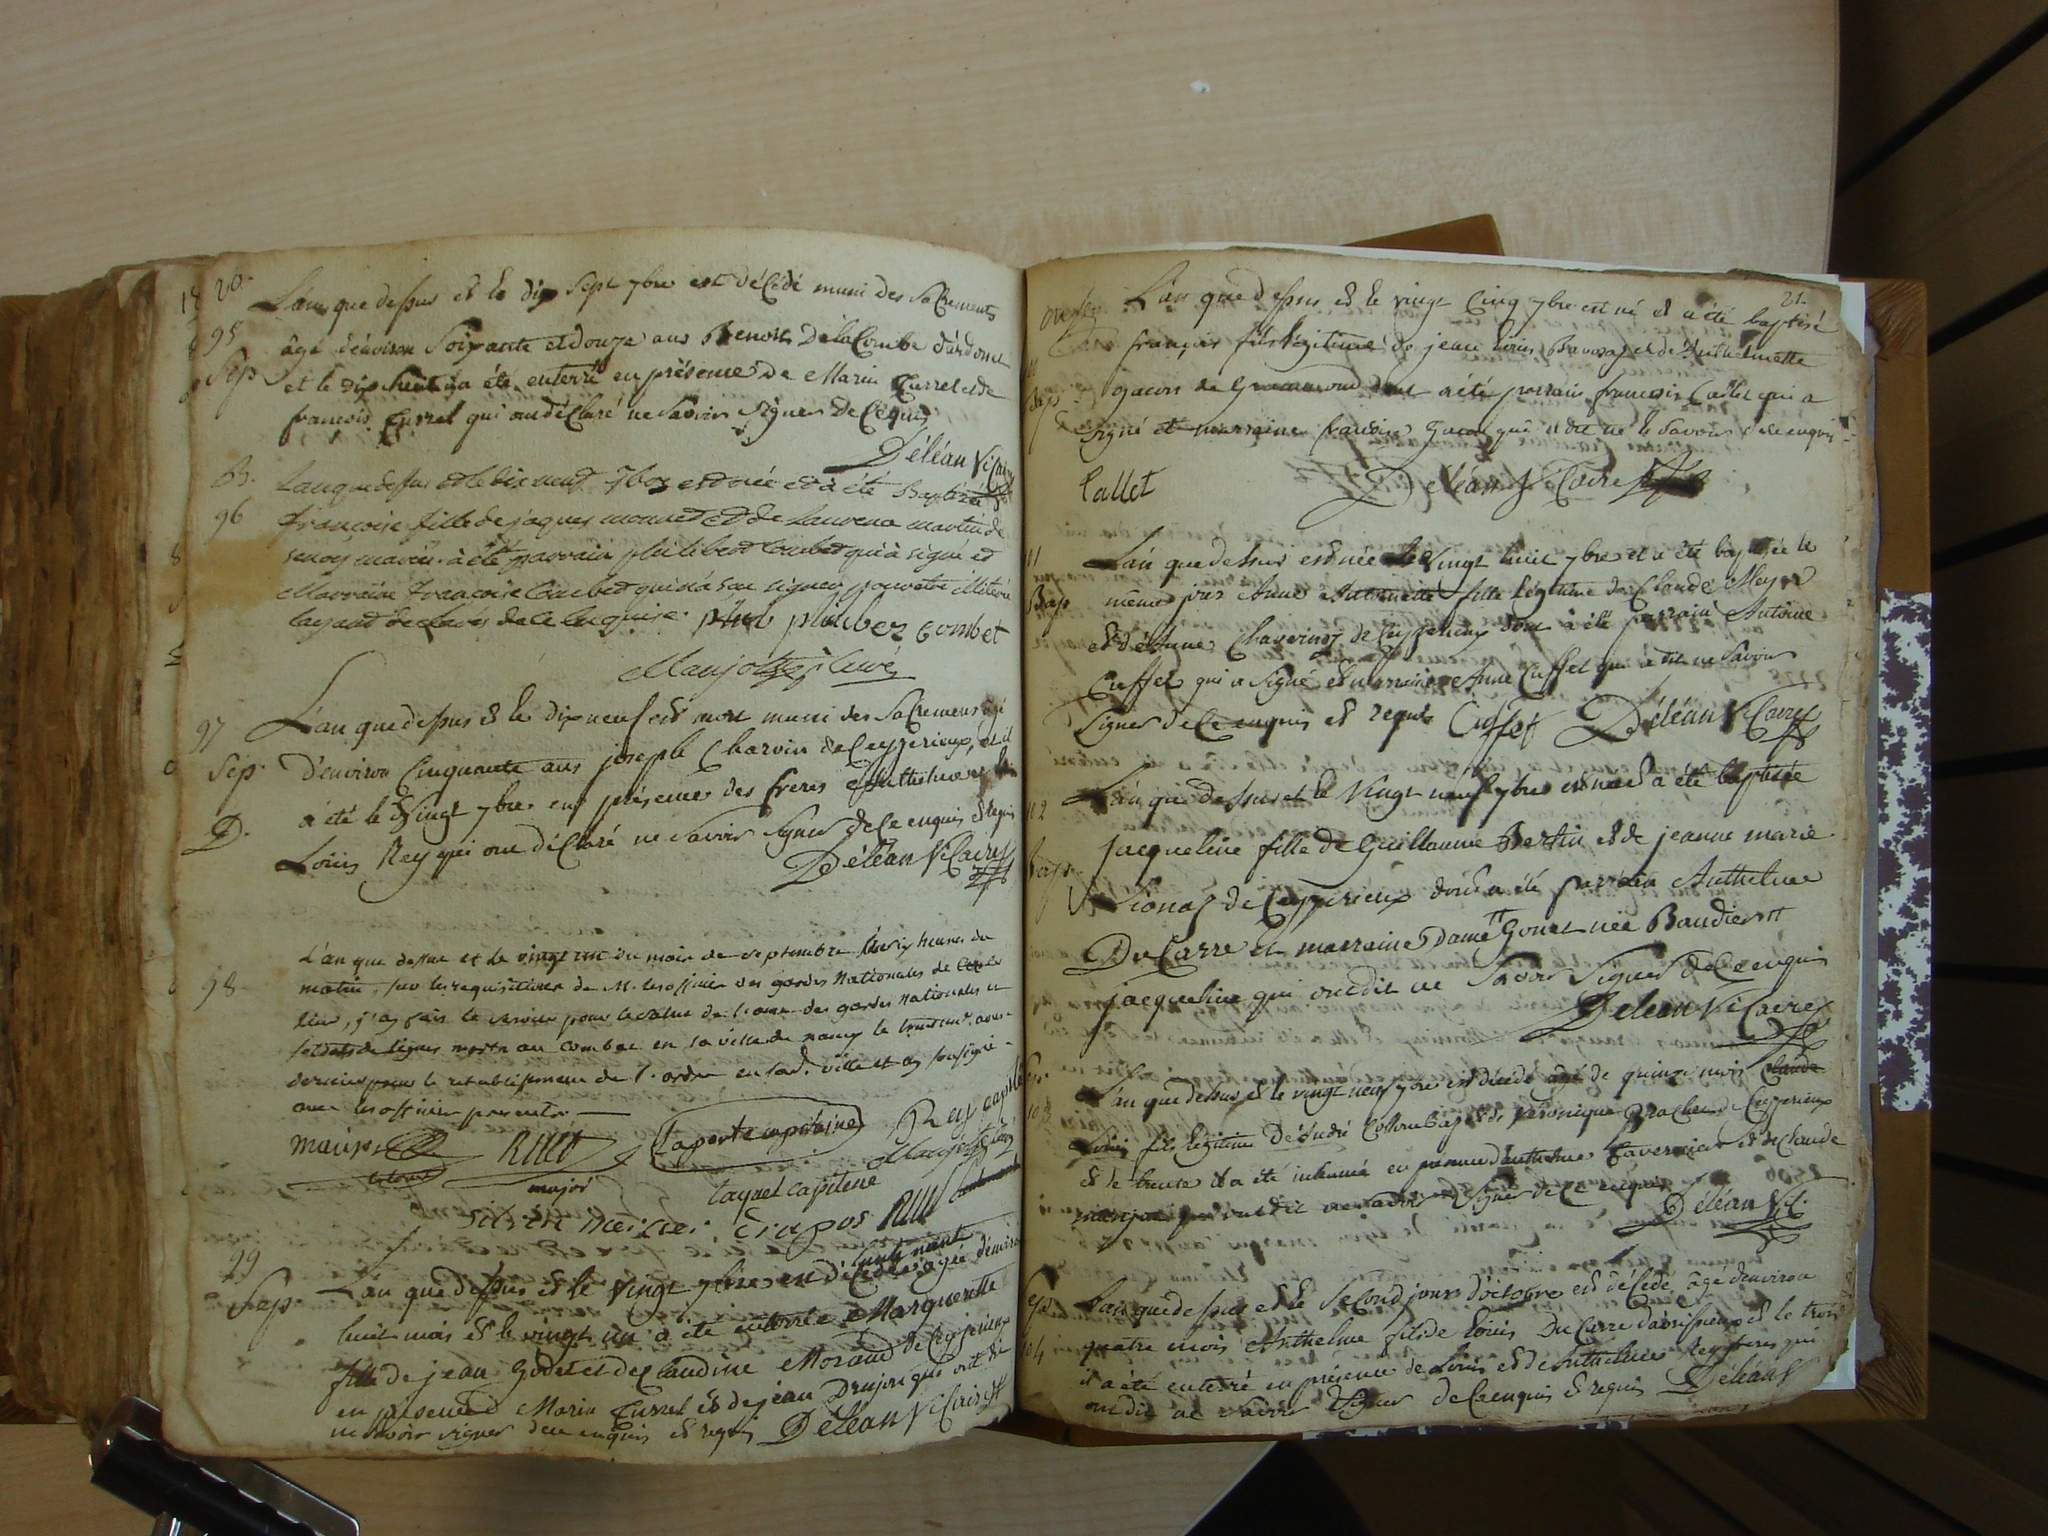 20.
L'an que dessus et le dix sept 7bre est décédé muni des sacrements
95
âgé d'environ soixante et douze ans Benoit De la Combe d'ardonet
Sep
et le dix huit il a été enterré en présence de Marin Currel et de
françois Currel qui ont déclaré ne savoir signer de ce enquis
Déléan Vicaire
B.
L'an que dessus et le dix neuf 7bre est née et a été Baptisée
96
françoise fille de jaques monnet et de Laurence martin de
marié a été parrain philibert Combet qui a signé et
Marraine francoise Combet qui n'a su signer pour etre illiterée
layant declaré de ce enquise. phil philiber Combet
Maujot curé
97
L'an que dessus et le dix neuf est mort muni des sacremens agé
Sep.
d'environ Cinquante ans joseph Charvin de Ceyzerieux, et il
D.
a été le vingt 7bre en présence des freres Anthelme et
Louis Rey qui ont déclaré ne savoir signer de ce enquis et requis
Déléan Vicaire
98
L'an que dessus et le vingt un du mois de septembre à dix heures du
matin, sur les requisitions de M. les officiers des gardes Nationales de ce
lieu, j'ay fait le service pour le salut de l'ame des gardes nationales et
soldats de lignes morts au combat en la ville de nancy le trente un aoust
dernier pour le retablissement de l'ordre en lad. ville et ay soussigné
avec les officiers presents
Rllet
major
Laporte capitaine
Rey capit
Maujot curé
taquet capitene
99
Sep.
L'an que dessus et le vingt 7bre est décédée agée d'environ
huit mois et le vingt un a été enterrée Margueritte
fille de jean Godet et de Claudine Morand de Ceyzerieux
en présence de Marin Currel et de jean Drujon qui ont dit
ne savoir signer de ce enquis et requis Déléan Vicaire
21.
L'an que dessus et le vingt Cinq 7bre est né et a été baptisé
françois fils légitime de jean Louis Bavozat et de Anthelmette
gacon de Grammond dont a été parrain françois Callet qui a
signé et marraine françoise Gacon qui a dit ne le savoir de ce enquis
Callet
Déléan Vicaire
L'an que dessus est née le vingt huit 7bre et a été baptisée le
Bap
même jour Anne Antoinette fille légitime de Claude Meyer
et d'Anne Chaveriaz de Ceyzerieux dont a été parrain Antoine
Cuffet qui a signé et marraine Anne Cuffet qui a dit ne savoir
signer de ce enquis et requis Cuffet Déléan Vicaire
102
L'an que dessus et le vingt neuf 7bre est née et a été baptisée
Bap.
jacqueline fille de Guillaume Bertin et de jeanne marie
de Ceyzerieux dont a été parrain Anthelme
Du Carre et marraine dame Gonet née Baudier
jacqueline qui ont dit ne savoir signer de ce enquis
Déléan Vicaire
Sep.
L'an que dessus et le vingt neuf 7bre est décédé âgé de quinze mois Claude
103
Louis fils légitime d'André Collombaz et de véronique Brachet de Ceyzerieux
et le trente il a été inhumé en présence d'anthelme Tavernier et de Claude
qui ont dit ne savoir signer de ce enquis
Déléan Vic.
Sep.
L'an que dessus et le second jour d'octobre est décédé âgé d'environ
104
quatre mois Anthelme fils de Louis Du Carre d'avrissieux et le trois
il a été enterré en présence de Louis et de Anthelme Rey freres qui
ont dit ne savoir signer de ce enquis et requis Déléan V